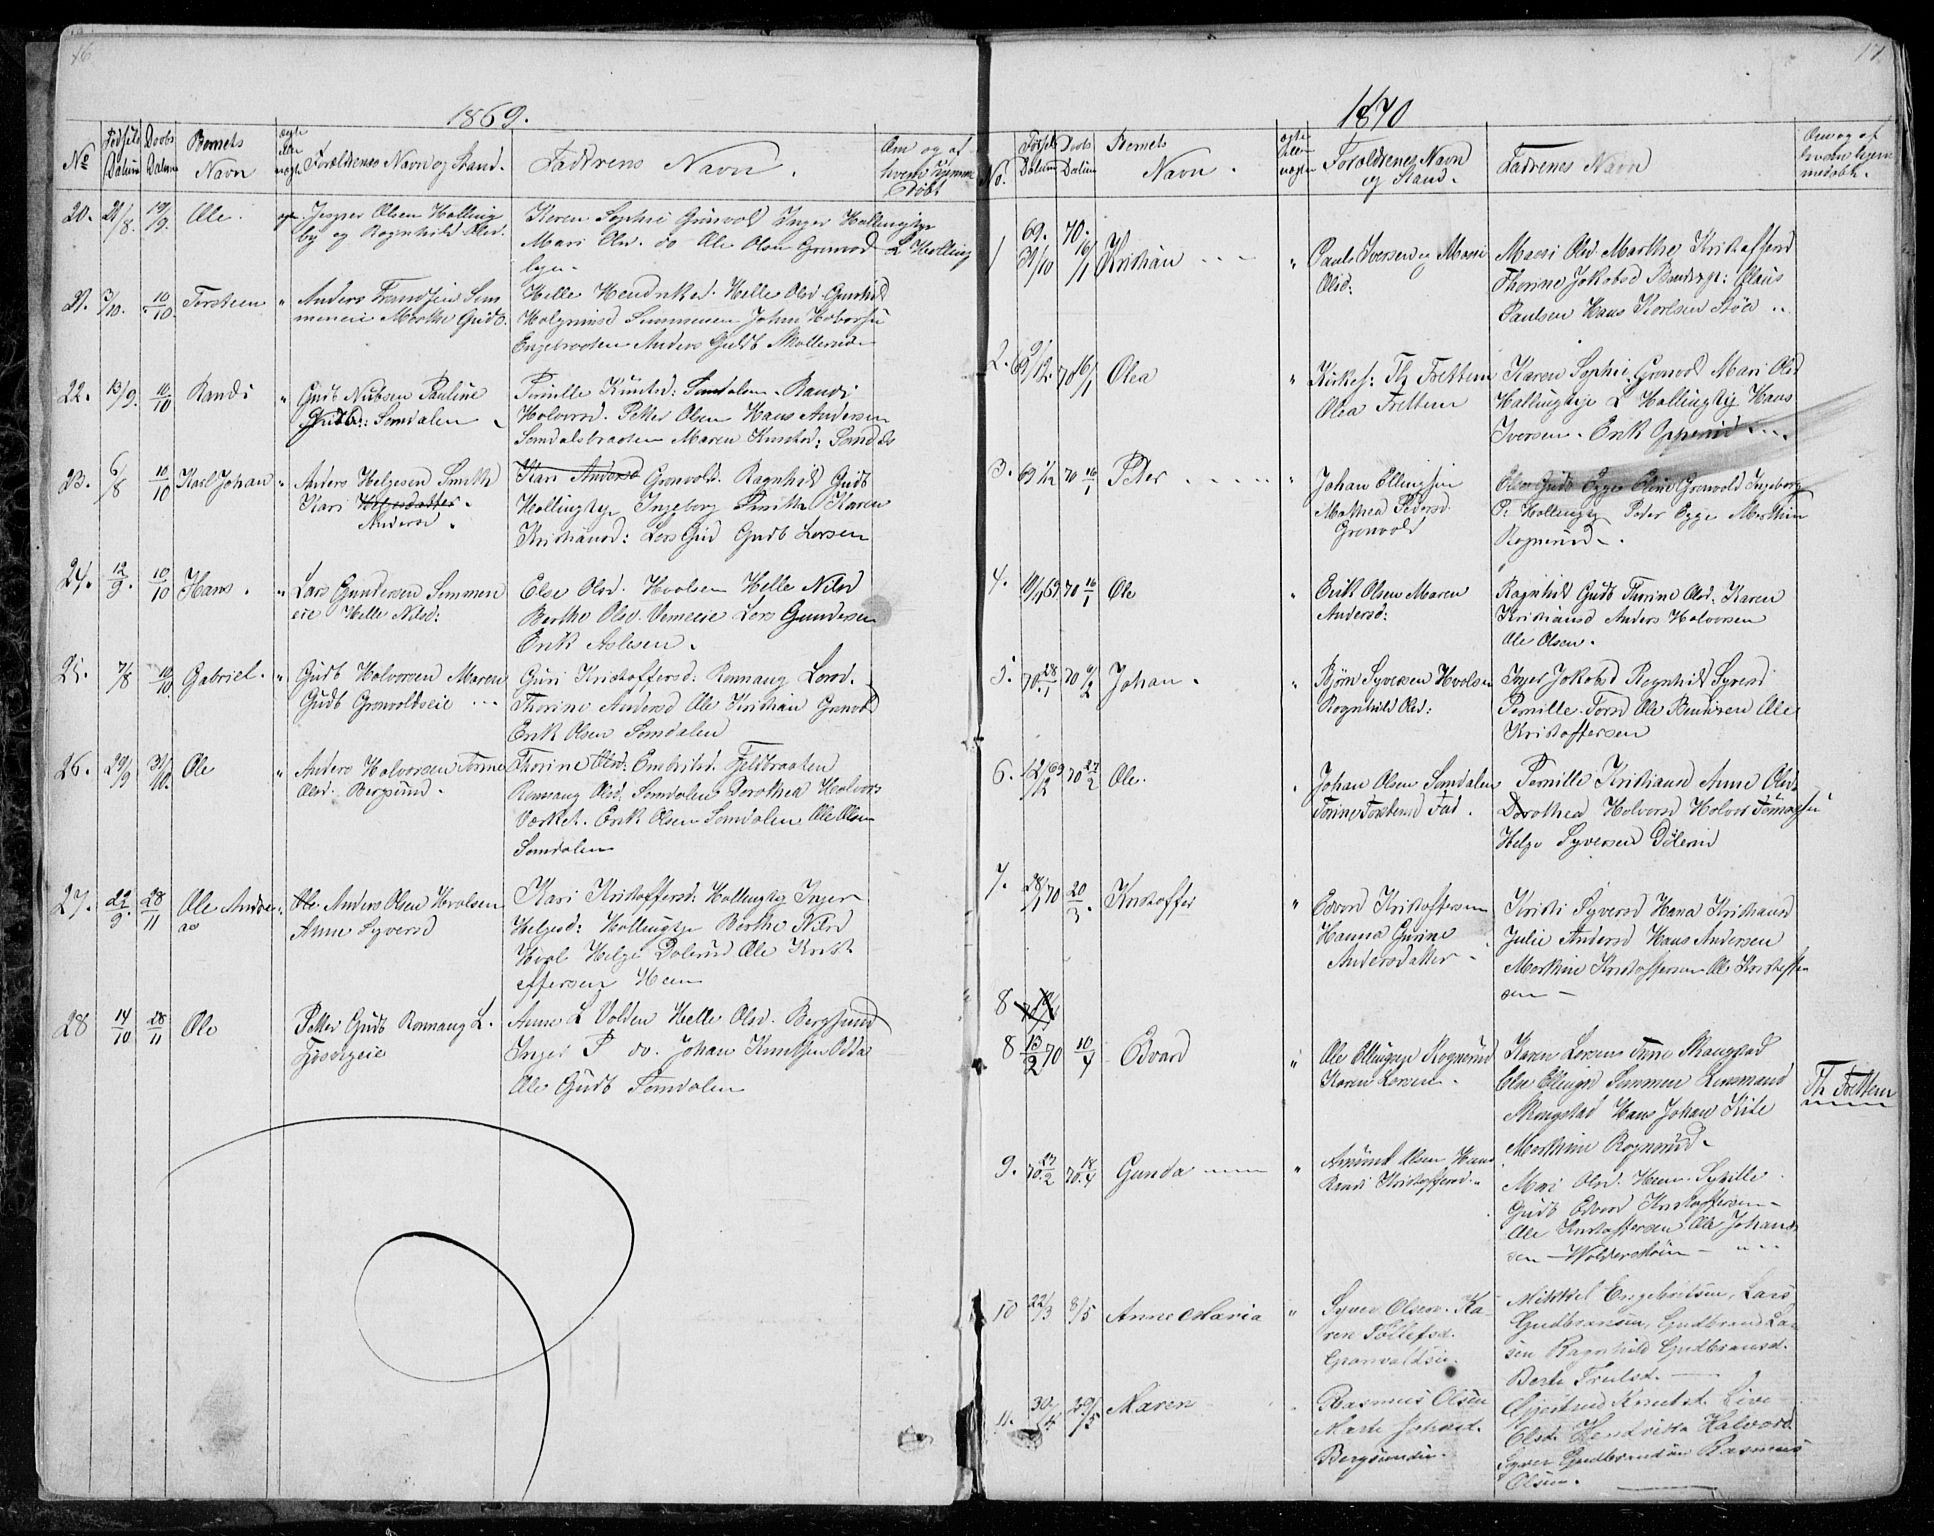 16
1869.
No Fødsels Datum Daabs Datum Barnets Navn ægte eller uægte Forældrenes Navn og Stand. Faddrens Navn. Om og af hvem hjemmedøbt
20. 21/8. 19/9. Ole. Jesper Olsen Halling
by og Ragnhild Olsd. Karen Sophie Grønvold Inger Hallingbye
Mari Olsd. do Ole Olsen Grønvold
L Halling
bye.
21. 3/10. 10/10. Torsteen " Anders Frandsen Sim
meneie Marthe Gudb.
Helle Hendriksd. Helle Olsd. Gunhild
Halgrimsd Simmenen Johan
Engebraaten Anders Gudb Skollerud
22. 13/9. 10/10 Randi " Gudb Nubsen Pauline
Gudb: Somdalen
Pernille Knutsd: Somdalen Randi
Halvorsd. Petter Olsen Hans Andersen
Somdalsbraaten Maren Knutsd: Somdal
23. 6/8 10/10 Karl Johan " Anders Helgesen Smith
Kari Helgesdatter
Andersd.
Kari Andersd Grønvold. Ragnhild Gudb
Hallingbye Ingeborg Smith Karen
Kristiansd: Lars Gud Gudb Larsen
24. 12/9. 10/10 Hans. " Lars Gundersen Simmen
eie Helle Nilsd:
Else Olsd. Hvalsen Helle Nilsd
Berthe Olsd. Vemeeie Lars Gundersen
Erik Aslesen.
25. 7/8 10/10 Gabriel. " Gudb Halvorsen Maren
Gudb Grønvoldseie
Guri Kristoffersd: Rønnaug Larsd.
Thorine Andersd Ole Kristian Grønvold
Erik Olsen Somdalen
26. 29/9 31/10. Ole " Anders Halvorsen Torine
Olsd. Bergsund.
Thorine Olsd: Embrikd. Fjeldbraaten
Rønnaug Olsd. Somdalen Dorothea Halvors
Værket. Erik Olsen Somdalen Ole Olsen
Somdalen
27. 22/9. 28/11 Ole Andre
as
Ole Anders Olsen Hvalsen
Anne Syversd
Kari Kristoffersd: Hallingby Inger
Helgesd: Hallingbye Berthe Nilsd
Hval Helge Dølerud Ole Krist
offersen Heen
28 14/10 28/11 Ole Petter Gudb Rønnaug L.
Anne L Volden Helle Olsd. Bergsund
Inger P do. Johan Knutsen Odda
Ole Gudb Somdalen
17.
1870
No. Fødsels Datum Daabs Datum Barnets Navn. ægte eller uægte Forældrenes Navn og Stand. Faddrenes Navn Om og af hvem hjemmedøbt.
1 69. 31/10 70. 16/1 Kristian " Paul Iversen og Mari
Olsd:
Mari Olsd Marthe Kristoffersd
Thorine Jakobsd Claus
Paulsen Hans Karlsen Støa
2. 69 9/12. 70 16/1 Olea " Kirkes: Th Frettem
Olea Frettem
Karen Sophie Grønvold Mari Olsd
Hallingbye L Hallingby Hans
Iversen. Erik Opperud
3. 69 1/12 70 16/1 Peter " Johan Ellingsen
Mathea Pedersd.
Grønvold
Olea Gudb Egge Eline Grønvold Ingeborg
P. Hallingby Peder Egge Marthin
Rognerud
4. 10/11 69 70 16/1 Ole " Erik Olsen Maren
Andersd:
Ragnhild Gudb Thorine Olsd. Karen
Kristiansd Anders Halvorsen
Ole Olsen.
5. 70. 28/1 70 6/2 Johan. " Bjørn Syversen Hvalsen
Ragnhild Olsd:
Inger Jakobsd Ragnhild Syversd
Pernille Torsd Ole Bentsen Ole
Kristoffersen
6. 12/12 69 70 27/2 Ole. Johan Olsen Somdalen
Torine Torstensd Fad.
Pernille Kristiansd Anne Olsd.
Dorothea Halvorsd Halvor
Helge Syversen Dølerud
7. 28/1 70 20/3. Kristoffer " Edvard Kristoffersen
Hanna Gurine
Andersdatter
Kristi Syversd Hana Kristiansd
Julie Andersd Hans Andersen
Marthin Kristoffersen Ole Kristoffer
sen
8
8 13/2 70 10/4 Edvard " Ole Ellingsen Rognerud
Karen Larsen.
Karen Larsens Tine Skaugstad
Else Ellingsd Simmen Lensmand
Skaugstad Hans Johan Kite
Marthine Rognerud.
Th Frettem
9. 70. 27/2 70. 18/4 Gunda " Amund Olsen Heen
Randi Kristoffersd.
Mari Olsd. Heen. Sybille
Gudb Edvard Kristoffersen
Ole Kristoffersen Ole Johann
sen
10 22/3 8/5 Anne Maria " Syver Olsen. Ka-
ren Tollefsd.
Granvaldsei.
Mikkel Engebretsen, Lars
Gudbransen, Gudbrand Lar
sen Ragnhild Gudbransd.
Berte Trulsd.
11. 30/4 29/5 Maren Rasmus Olsen
Marte Johansd.
Bergsundei.
Gjertrud Knutsd. Live
Olsd. Hendrikka Halvord.
Syver Gudbrandsen Rasmus
Olsen.